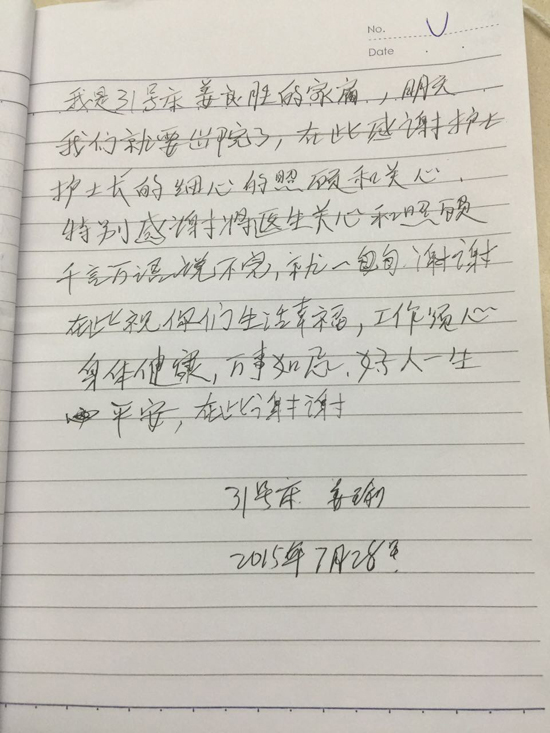 No.
Date
我是31号床姜良胜的家属，明天
我们就要出院了，在此感谢护士
护士长的细心的照顾和关心．
特别感谢蒋医生关心和照顾
千言万语说不完，就一句 谢谢
在此祝你们生活幸福，工作顺心
身体健康，万事如意．好人一生
平安，在此谢谢
31号床 姜
2015年7月28号